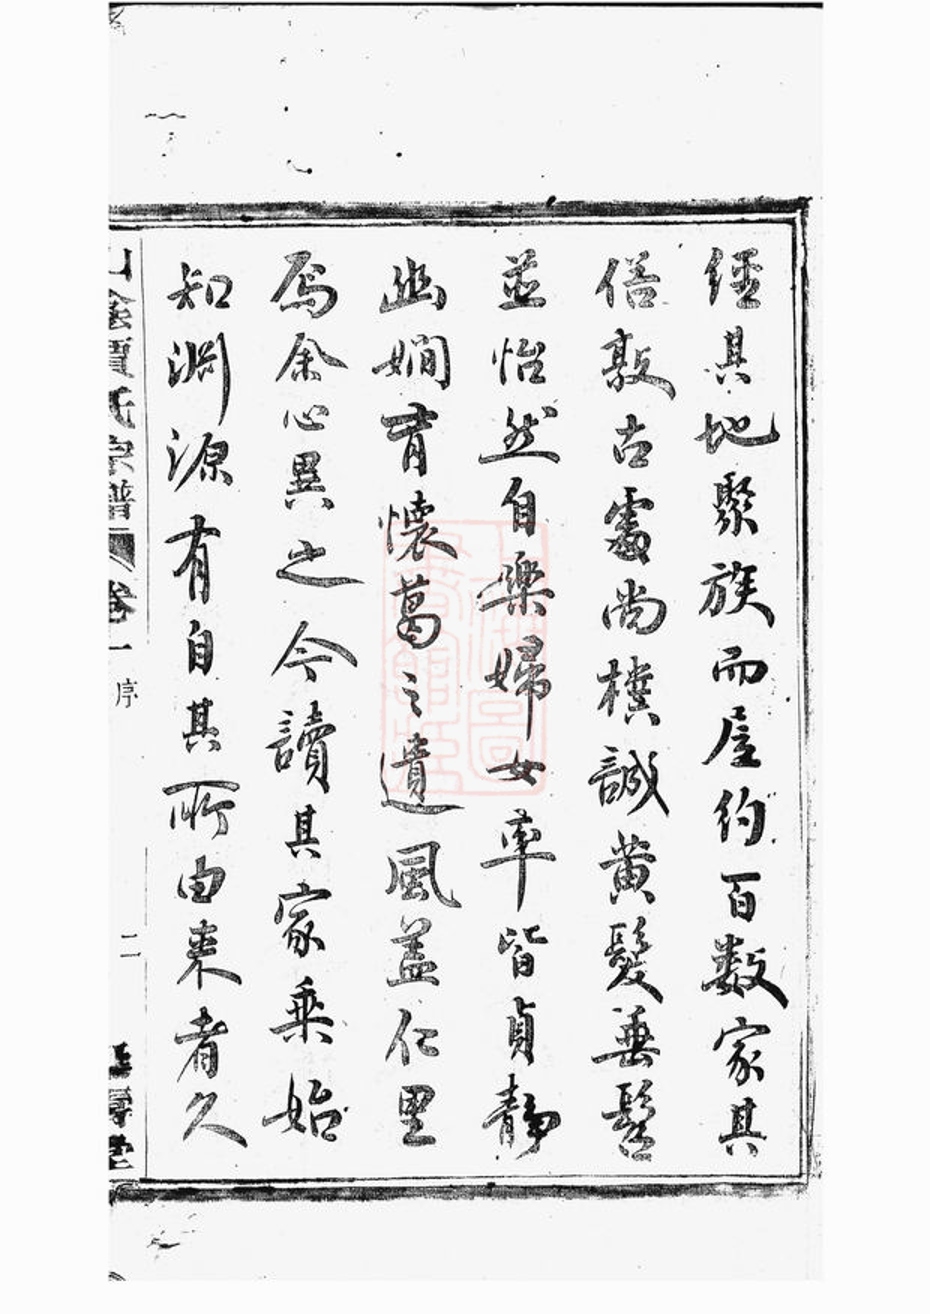 經其地聚族而居約百數家其
俗敦古處尚樸誠黄髮垂髫
並怡然自樂婦女率皆貞靜
幽嫻有懷葛之遺風盖仁里
焉余心異之今讀其家乗始
知淵源有自其所由来者久
山陰賈氏宗譜 卷一 序 二